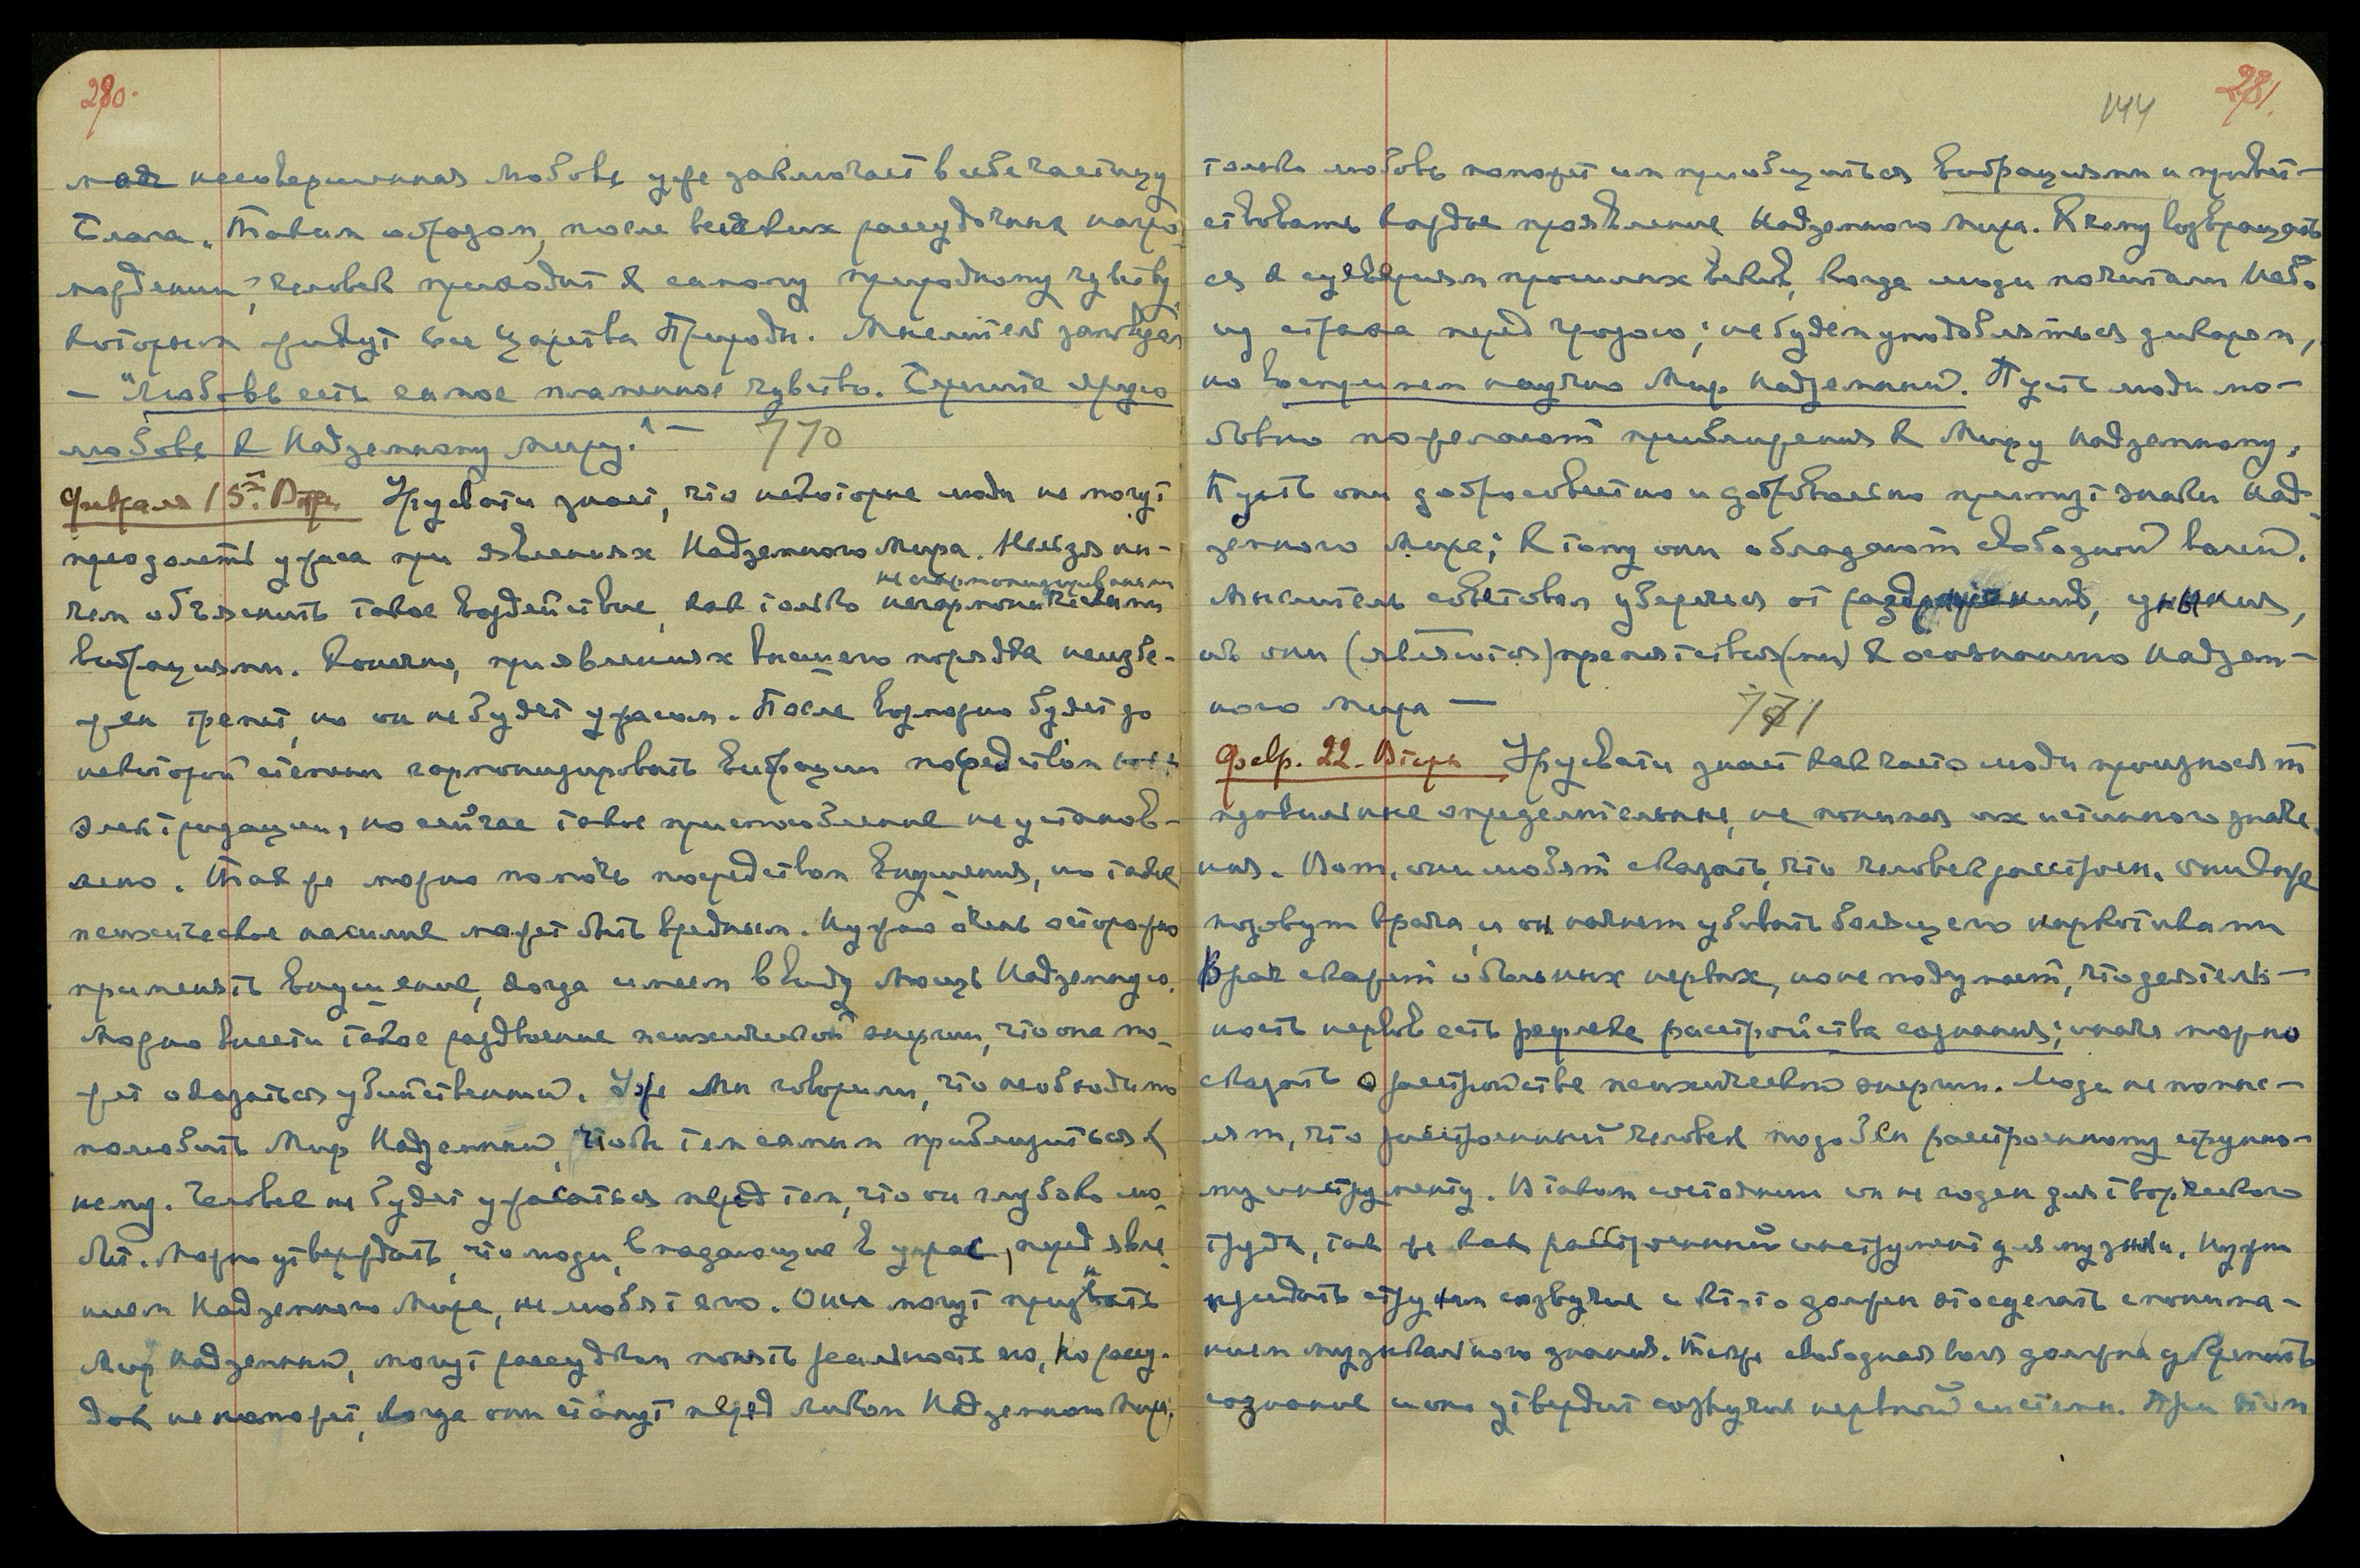 280.
маде несовершенная любовь уже заключает в себе частицу
Блага. Таким образом, после всяких рассудочных нагро-
мождений, человек приходит к самому природному чувству
которым живут все царства Природы. Мыслитель заповедал
— "Любовь есть самое пламенное чувство. Храните яркую
любовь к Надземному миру." — 770
Февраля 15ое Втор. Урусвати знает, что некоторые люди не могут
преодолеть ужаса при явлениях Надземного Мира. Нельзя ни-
несгармонизированными
чем объяснить такое воздействие, как только негармоническими
вибрациями. Конечно, при явлениях высшего порядка неизбе-
жен трепет, но он не будет ужасом. После возможно будет до
некоторой степени гармонизировать вибрации посредством
электризации, но сейчас такое приспособление не установ-
лено. Так же можно помочь посредством внушения, но такое
психическое насилие может быть вредным. Нужно очень осторожно
применять внушение, когда имеем в виду Мощь Надземную.
Можно внести такое раздвоение психической энергии, что она мо-
жет оказаться убийственной. Уже Мы говорили, что необходимо
полюбить Мир Надземный, чтобы тем самым приблизиться к
нему. Человек не будет ужасаться перед тем, что он глубоко лю-
бит. Можно утверждать, что люди, впадающие в ужас, перед явле-
нием Надземного Мира, не любят его. Они могут признавать
Мир Надземный, могут рассудком понять реальность его, но рассу-
док не поможет, когда они станут перед ликом Надземного Мира,
144 281.
только любовь поможет им приобщиться вибрациями и приветст-
ствовать каждое проявление Надземного мира. К чему возвращать
ся к суевериям прошлых веков, когда люди почитали Небо
из страха перед грозою; не будем уподобляться дикарям,
но воспримем научно Мир Надземный. Пусть люди лю-
бовно пожелают приближения к Миру Надземному,
Пусть они добросовестно и добровольно примут знаки Над-
земного Мира; к тому они обладают свободной волей.
Мыслитель советовал уберечься от раздражения, уныния,
ибо они (являются) препятствия(ми) к осознанию Надзем-
ного Мира — 771
Февр. 22. Вторн Урусвати знает как часто люди произносят
правильные определительные, не понимая их истинного значе-
ния. Вот, они любят сказать, что человек расстроен. Они даже
позовут врача, и он начнет убивать болящего наркотиками
Врач скажет о больных нервах, но не подумает, что деятель-
ность нервов есть рефлекс расстройства сознания; иначе можно
сказать о расстройстве психической энергии. Люди не помыс-
лят, что расстроенный человек подобен расстроенному струнно-
му инструменту. В таком состоянии он не годен для творческого
труда, так же как расстроенный инструмент для музыки. Нужно
придать струнам созвучие и кто-то должен это сделать с понима-
нием музыкального знания. Также свободная воля должна укрепить
сознание и оно утвердит созвучие нервной системы. При этом